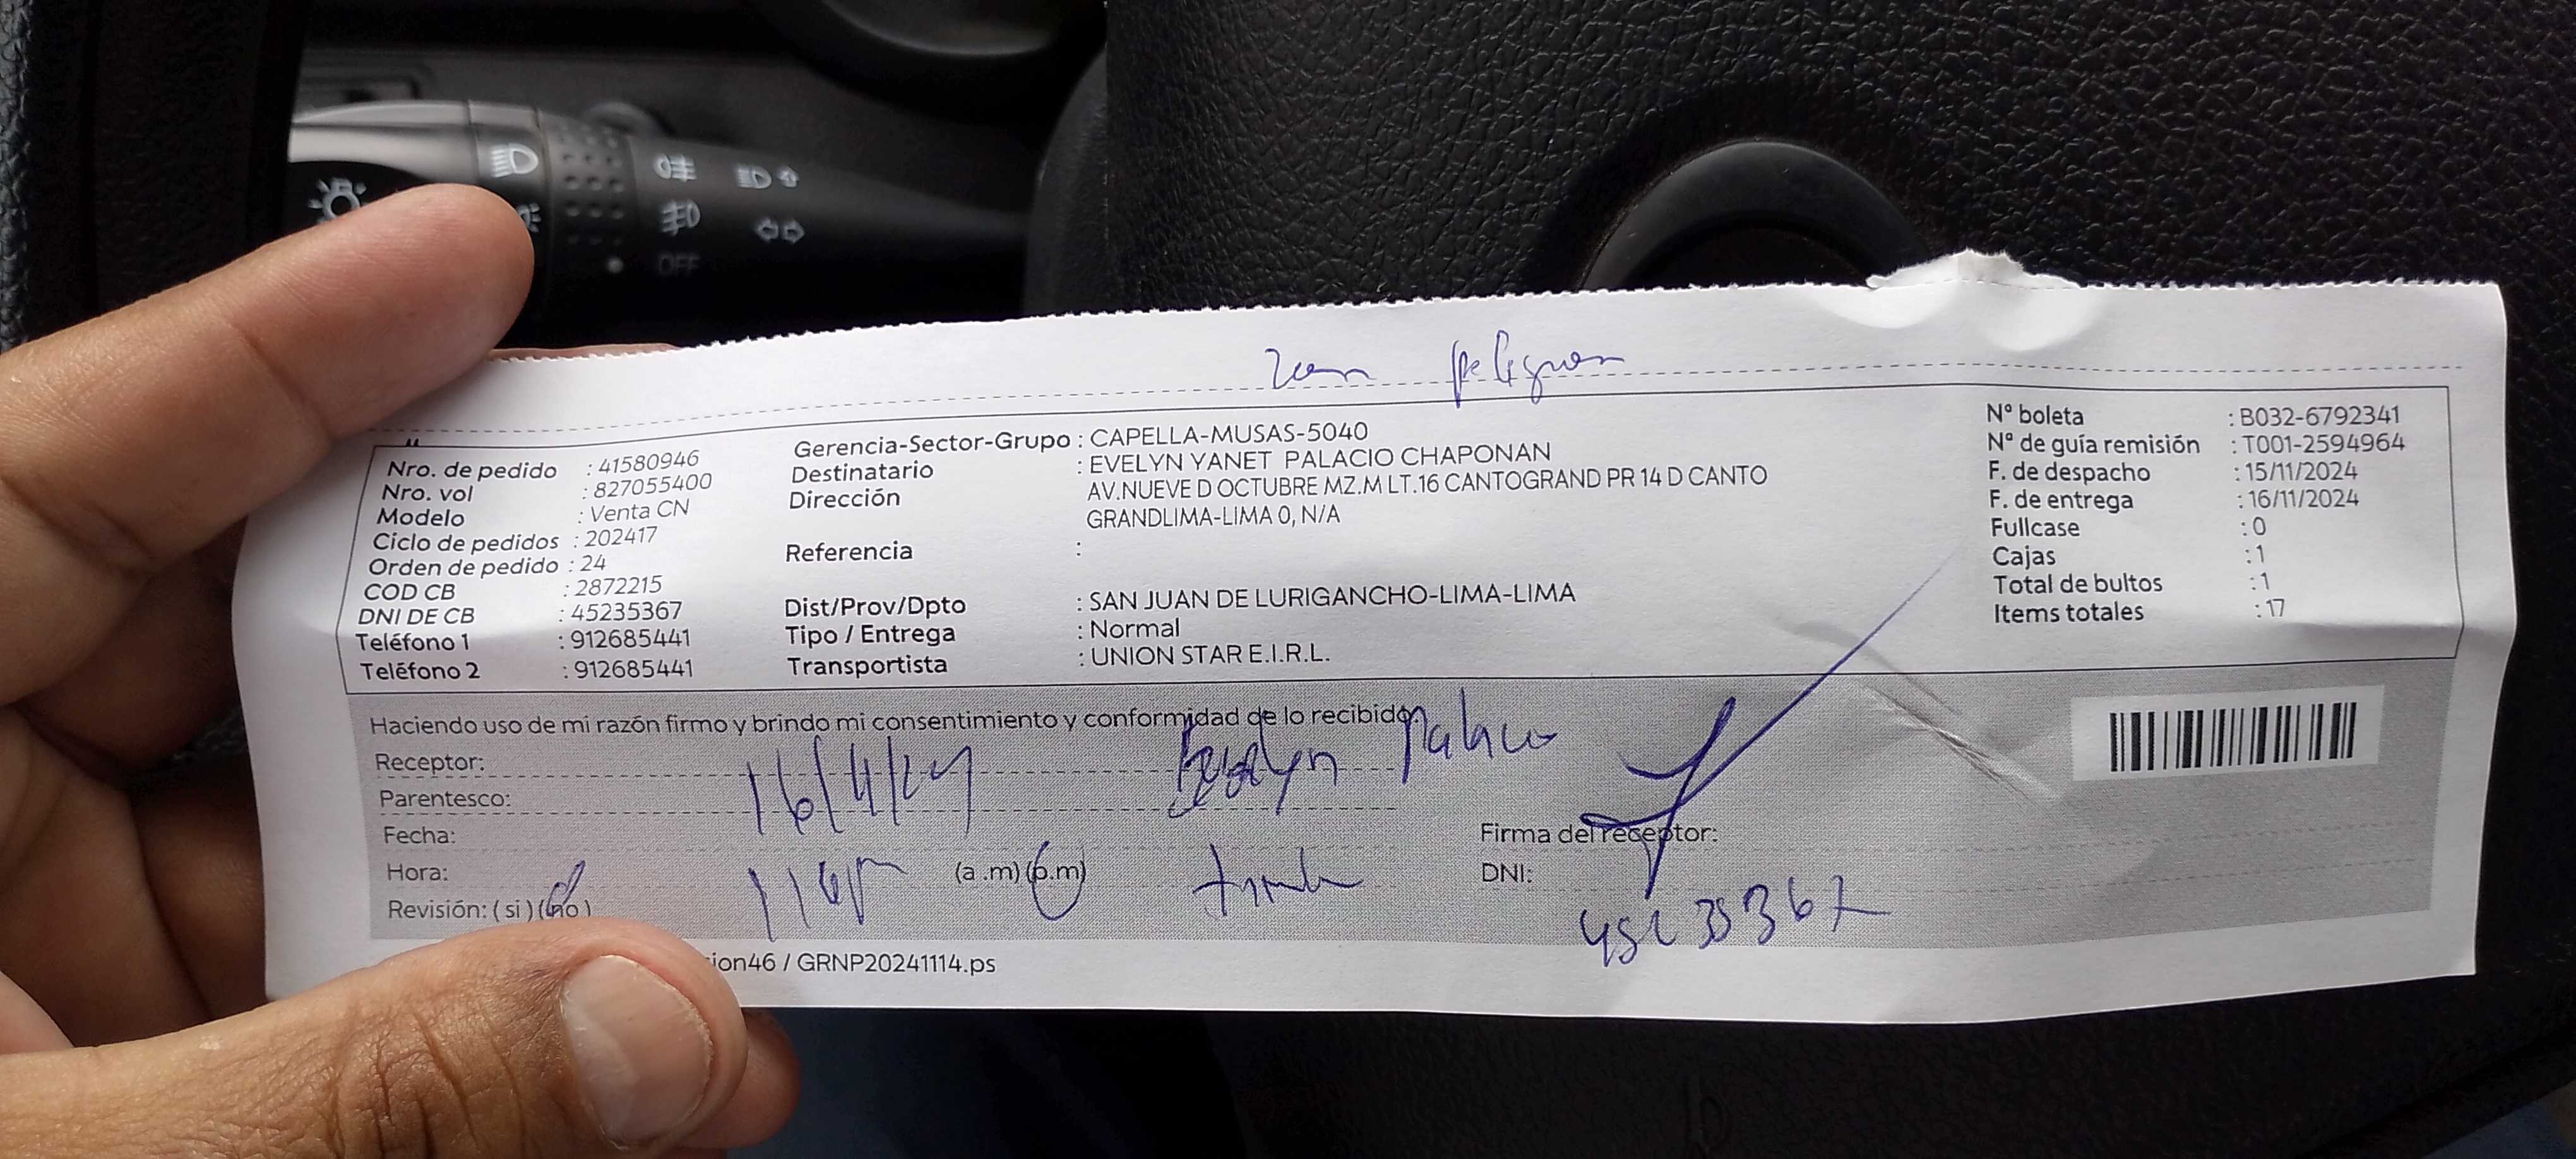 OFF
zona peligrosa
Nro. de pedido : 41580946
Nro. vol : 827055400
Modelo : Venta CN
Ciclo de pedidos : 202417
Orden de pedido : 24
COD CB : 2872215
DNI DE CB : 45235367
Teléfono 1 : 912685441
Teléfono 2 : 912685441
Gerencia-Sector-Grupo : CAPELLA-MUSAS-5040
Destinatario : EVELYN YANET PALACIO CHAPONAN
Dirección AV.NUEVE D OCTUBRE MZ.M LT.16 CANTOGRAND PR 14 D CANTO
GRANDLIMA-LIMA 0, N/A
Referencia :
Dist/Prov/Dpto : SAN JUAN DE LURIGANCHO-LIMA-LIMA
Tipo / Entrega : Normal
Transportista : UNION STAR E.I.R.L.
N° boleta : B032-6792341
N° de guía remisión : T001-2594964
F. de despacho : 15/11/2024
F. de entrega : 16/11/2024
Fullcase : 0
Cajas : 1
Total de bultos : 1
Items totales : 17
Haciendo uso de mi razón firmo y brindo mi consentimiento y conformidad de lo recibido.
Receptor: Evelyn Palacio
Parentesco:
Fecha: 16/11/24
Hora: (a .m) (p.m)
Revisión: ( si ) (no )
Firma del receptor:
DNI: 45235367
ion46 / GRNP20241114.ps